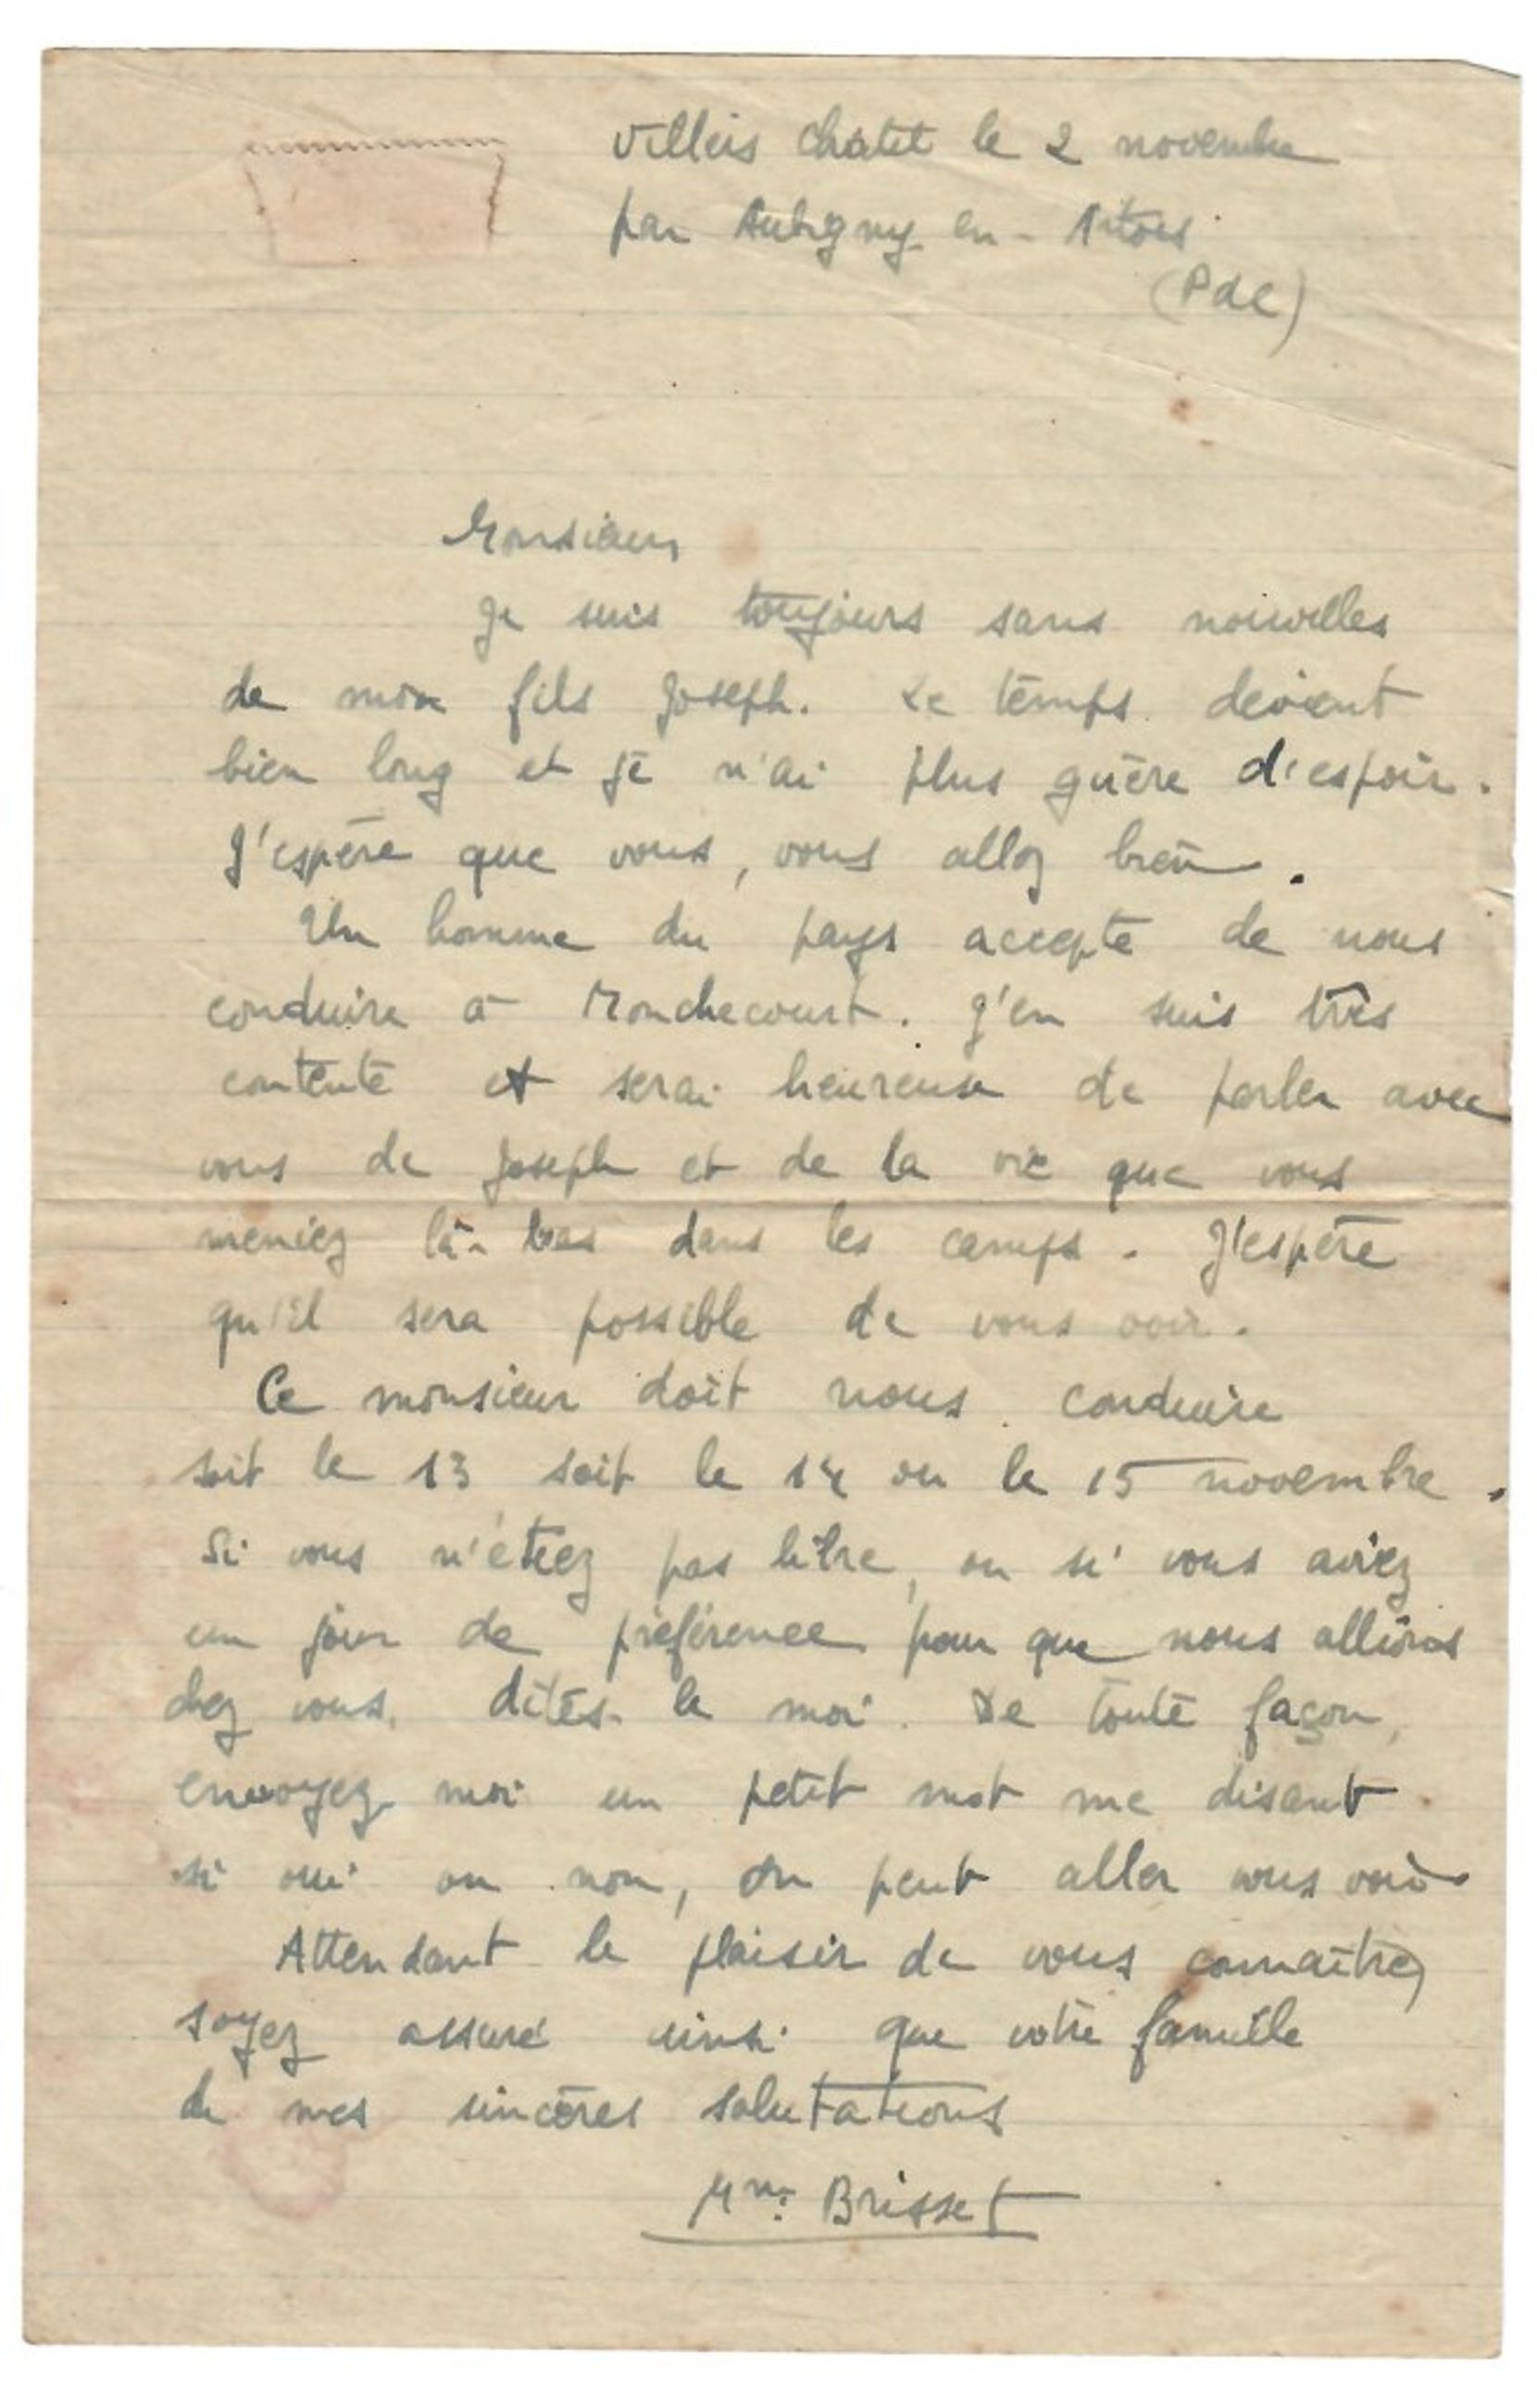 Villers Châtel le 2 novembre
par Aubigny en-Artois
(PdC)
Monsieur
Je suis toujours sans nouvelles
de mon fils Joseph. Le temps devient
bien long et je n'ai plus guère d'espoir.
J'espère que vous, vous allez bien.
Un homme du pays accepte de nous
conduire à Monchecourt. J'en suis très
contente et serai heureuse de parler avec
vous de Joseph et de la vie que vous
meniez là-bas dans les camps. J'espère
qu'il sera possible de vous voir.
Ce monsieur doit nous conduire
soit le 13 soit le 14 ou le 15 novembre.
Si vous n'étiez pas libre, ou si vous aviez
un jour de préférence pour que nous allions
chez vous, dites-le moi. De toute façon,
envoyez moi un petit mot me disant
si oui ou non, on peut aller vous voir.
Attendant le plaisir de vous connaître,
soyez assuré ainsi que votre famille
de mes sincères salutations
Mme Brisset